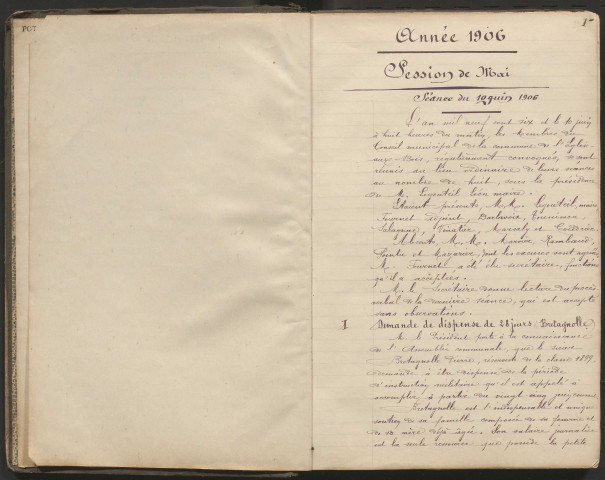 PGT
1
Année 1906
Session de Mai
Séance du 10 juin 1906
L'an mil neuf cent six et le 10 juin
à huit heures du matin, les Membres du
Conseil municipal de la commune de l'Eglise
aux-Bois, régulièrement convoqués, se sont
réunis au lieu ordinaire de leurs séances
au nombre de huit, sous la présidence
de M. Léon maire.
Etaient présents, M.M. maire
adjoint,
et
Absents, M.M.
et dont les excuses sont
M. a été élu secrétaire, fonctions
qu'il a acceptées.
M. le Secrétaire donne lecture du procès
verbal de la dernière séance, qui est accepté
sans observations.
I Demande de dispense de 28 jours (Bretagnolle)
M. le Président porte à la connaissance
de l'Assemblée communale, que le sieur
Bretagnolle Pierre, réserviste de la classe 1899
demande à être dispensé de la période
d'instruction militaire qu'il est appelé à
accomplir à partir du vingt cinq juin
Bretagnolle est l'indispensable et unique
soutien de sa famille composée de sa femme et
de sa mère déjà âgée. Son salaire journalier
est la seule ressource que possède la petite